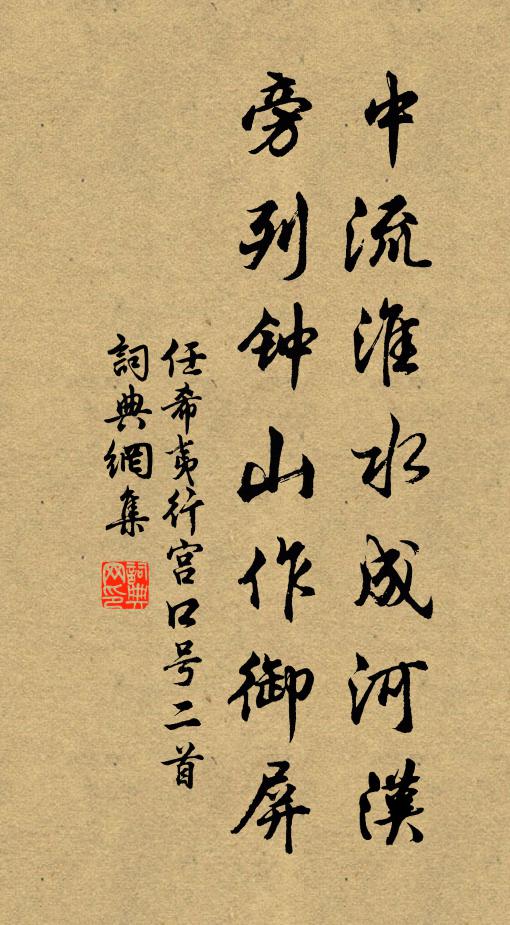 中流淮水成河漢
旁列钟山作御屏
任希夷行宫口号二首
詞典網集
詞典
网印